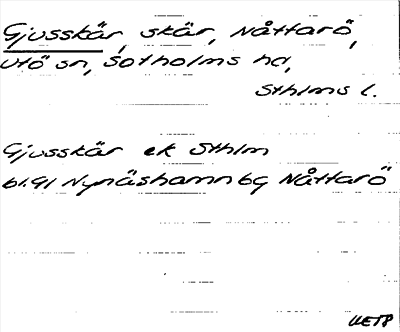 Gjusskär, skär, Nåttarö,
Utö sn, Sotholms hd,
Sthlms l.
Gjusskär ek Sthlm
bl.91 Nynäshamn bg Nåttarö
UETP